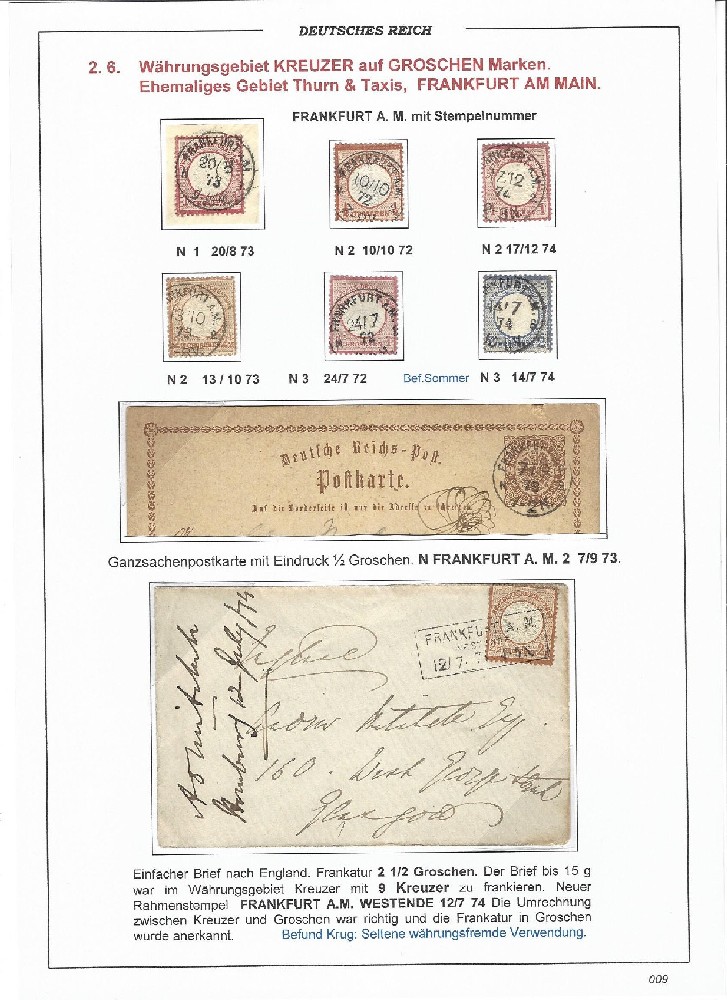 DEUTSCHES REICH
2. 6. Währungsgebiet KREUZER auf GROSCHEN Marken.
Ehemaliges Gebiet Thurn & Taxis, FRANKFURT AM MAIN.
FRANKFURT A. M. mit Stempelnummer
FRANKFURT A.M.
20/8
73
FRANKFURT A.M.
10/10
72
N 1 20/8 73
N 2 10/10 72
N 2 17/12 74
FRANKFURT A.M.
FRANKFURT A.M.
24/7
72
N 2 13 / 10 73
N 3 24/7 72
Bef.Sommer
N 3 14/7 74
Deutsche Reichs-Post.
Postkarte.
Auf die Vorderseite ist nur die Adresse zu schreiben
Ganzsachenpostkarte mit Eindruck ½ Groschen. N FRANKFURT A. M. 2 7/9 73.
FRANKFU A. M.
12/7.
160. West George Street
Glasgow
Einfacher Brief nach England. Frankatur 2 1/2 Groschen. Der Brief bis 15 g
war im Währungsgebiet Kreuzer mit 9 Kreuzer zu frankieren. Neuer
Rahmenstempel FRANKFURT A.M. WESTENDE 12/7 74 Die Umrechnung
zwischen Kreuzer und Groschen war richtig und die Frankatur in Groschen
wurde anerkannt. Befund Krug: Seltene währungsfremde Verwendung.
009